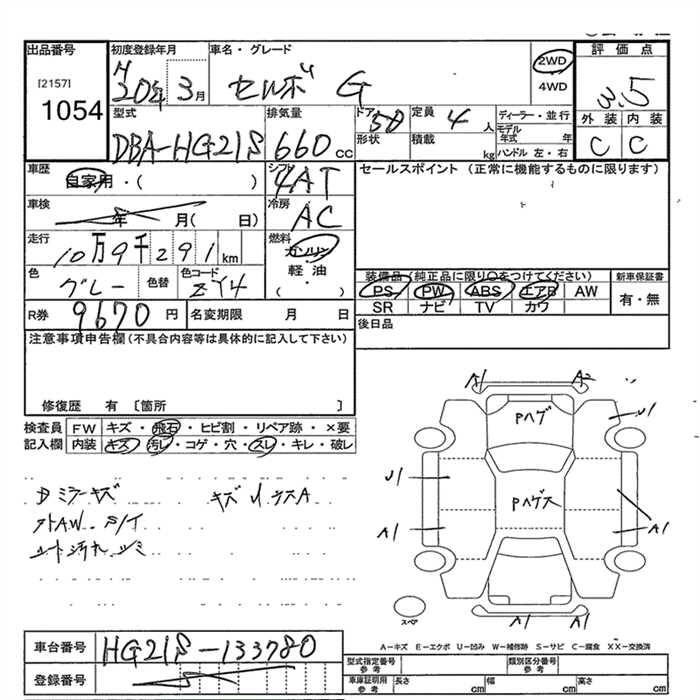 出品番号
[2157]
1054
初度登録年月
H20年 3月
車名・グレード
セルボ G
2WD
4WD
評価点
3.5
外装 内装
C C
型式
DBA-HG21S
排気量
660 cc
ドア 5D
形状
定員 4 人
積載 kg
ディーラー・並行
モデル年式 年
ハンドル 左・右
車歴
自家用・( )
シフト
4AT
車検
年 月( 日)
冷房
AC
走行
10万9千291 km
燃料
ガソリン
軽・油
( ・ )
色
グレー
色替
色コード
ZY4
R券 9670 円
名変期限 月 日
セールスポイント (正常に機能するものに限ります)
装備品(純正品に限り○をつけてください)
PS PW ABS エアB AW
SR ナビ TV カワ
新車保証書
有・無
後日品
注意事項申告欄(不具合内容等は具体的に記入して下さい)
修復歴 有 〔箇所 〕
検査員記入欄
FW キズ・飛石・ヒビ割・リペア跡・×要
内装 キズ・汚レ・コゲ・穴・スレ・キレ・破レ
Dミラーキズ
社外AW
A1 A2
U1
Pハゲ
U1
Pハゲス
A1 A1
A1 A1
スペア
A-キズ E-エクボ U-凹み W-補修跡 S-サビ C-腐食 XX-交換済
車台番号 HG21S-133780
登録番号
型式指定番号 参考
類別区分番号 参考
車庫証明用 参考 長さ cm 幅 cm 高さ cm